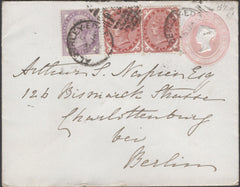 Arthur S. Napier Esq
126 Bismarck Strasse
Charlottenburg
bei
Berlin